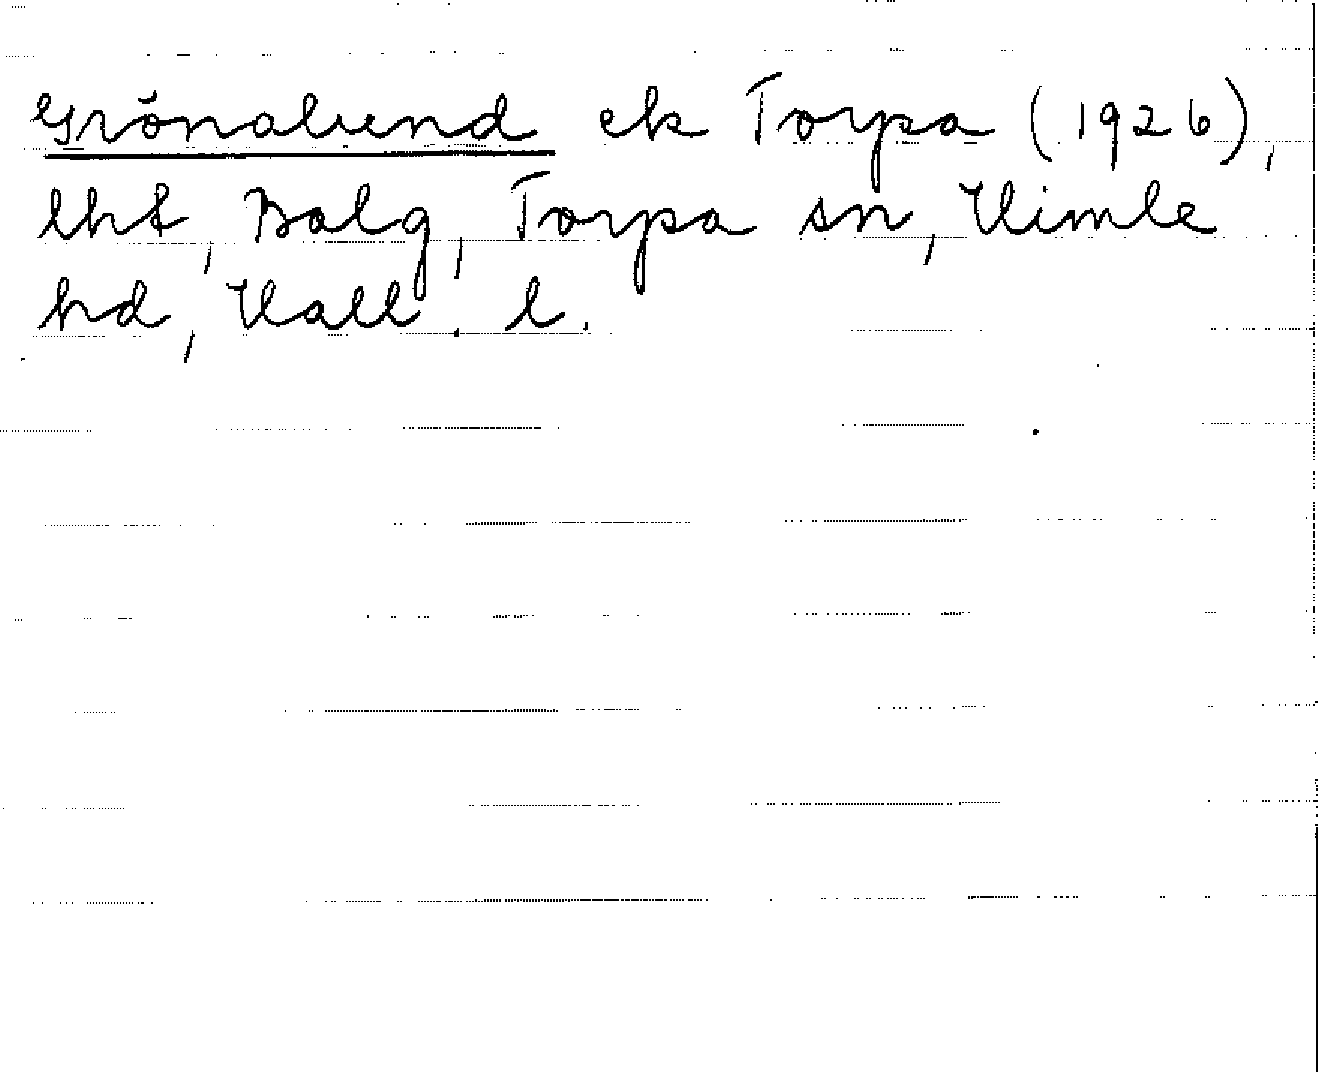 Grönalund ek Torpa (1926),
lht, Balg, Torpa sn, Himle
hd, Hall. l.